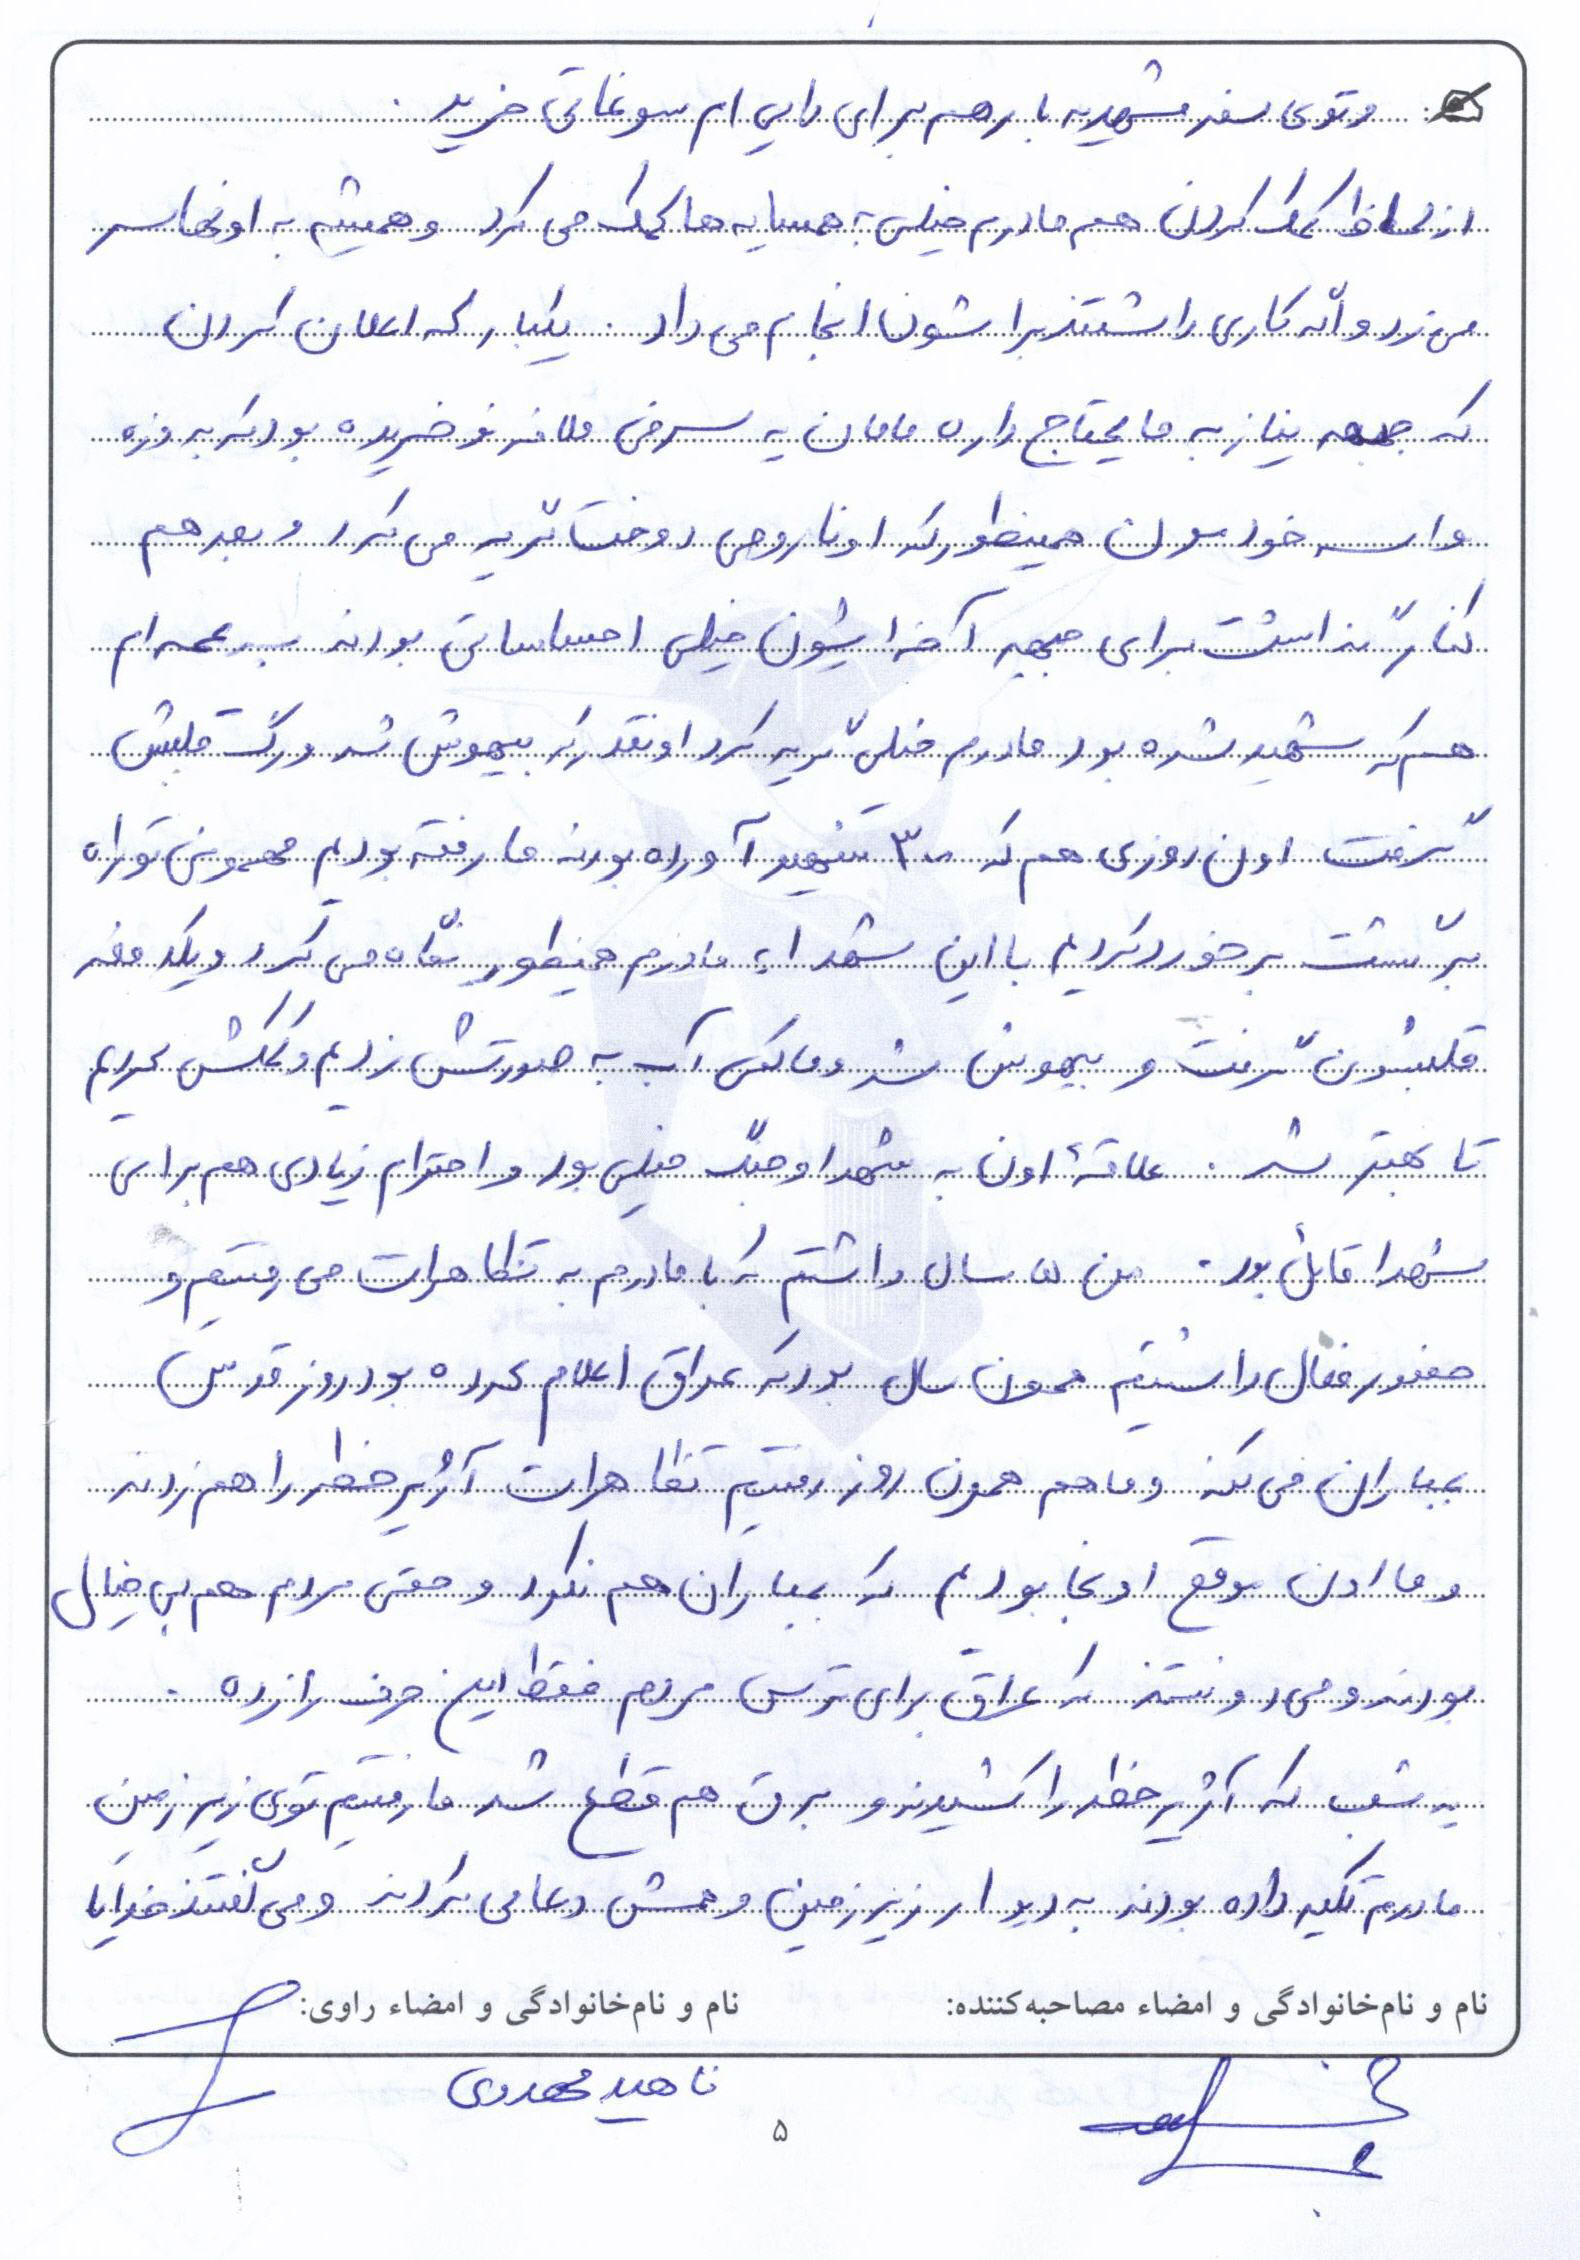 و توی سفر مشهد یه بار هم برای دایی ام سوغاتی خرید .
از لحاظ کمک کردن هم مادرم خیلی به همسایه ها کمک می کرد و همیشه به اونها سر
می زد و اگه کاری داشتند براشون انجام می داد . یکبار که اعلان کردن
که جبهه نیاز به مایحتاج داره مامان یه سرخی ملافه نو خریده بود که بدوزه
واسه خودمون همینطور که اونا رو می دوخت گریه می کرد و بعد هم
کنار گذاشت برای جبهه آخه ایشون خیلی احساساتی بودند پسر عمه ام
هم که شهید شده بود مادرم خیلی گریه کرد اونقدر که بیهوش شد و رگ قلبش
گرفت اون روزی هم که ۳۰۰ شهید آورده بودند ما رفته بودیم مهمونی تو راه
برگشت برخورد کردیم با این شهداء مادرم همینطور نگاه می کرد و یکدفعه
قلبشون گرفت و بیهوش شد و ما کمی آب به صورتش زدیم و کمکش کردیم
تا بهتر شد . علاقهٔ اون به شهدا و جنگ خیلی بود و احترام زیادی هم برای
شهدا قائل بود . من ۵ سال داشتم که با مادرم به تظاهرات می رفتیم و
حضور فعال داشتیم همون سال بود که عراق اعلام کرده بود روز قدس
بمباران می کنه و ما هم همون روز رفتیم تظاهرات آژیر خطر را هم زدند
و ما اون موقع اونجا بودیم که بمباران هم نکرد و حتی مردم هم بی خیال
بودند و می دونستند که عراق برای ترس مردم فقط این حرف را زده .
یه شب که آژیر خطر را کشیدند و برق هم قطع شد ما رفتیم توی زیر زمین
مادرم تکیه داده بودند به دیوار زیر زمین و همش دعا می کردند و می گفتند خدایا
نام و نام‌خانوادگی و امضاء مصاحبه‌کننده: نام و نام‌خانوادگی و امضاء راوی:
ناهید مهدوی
۵